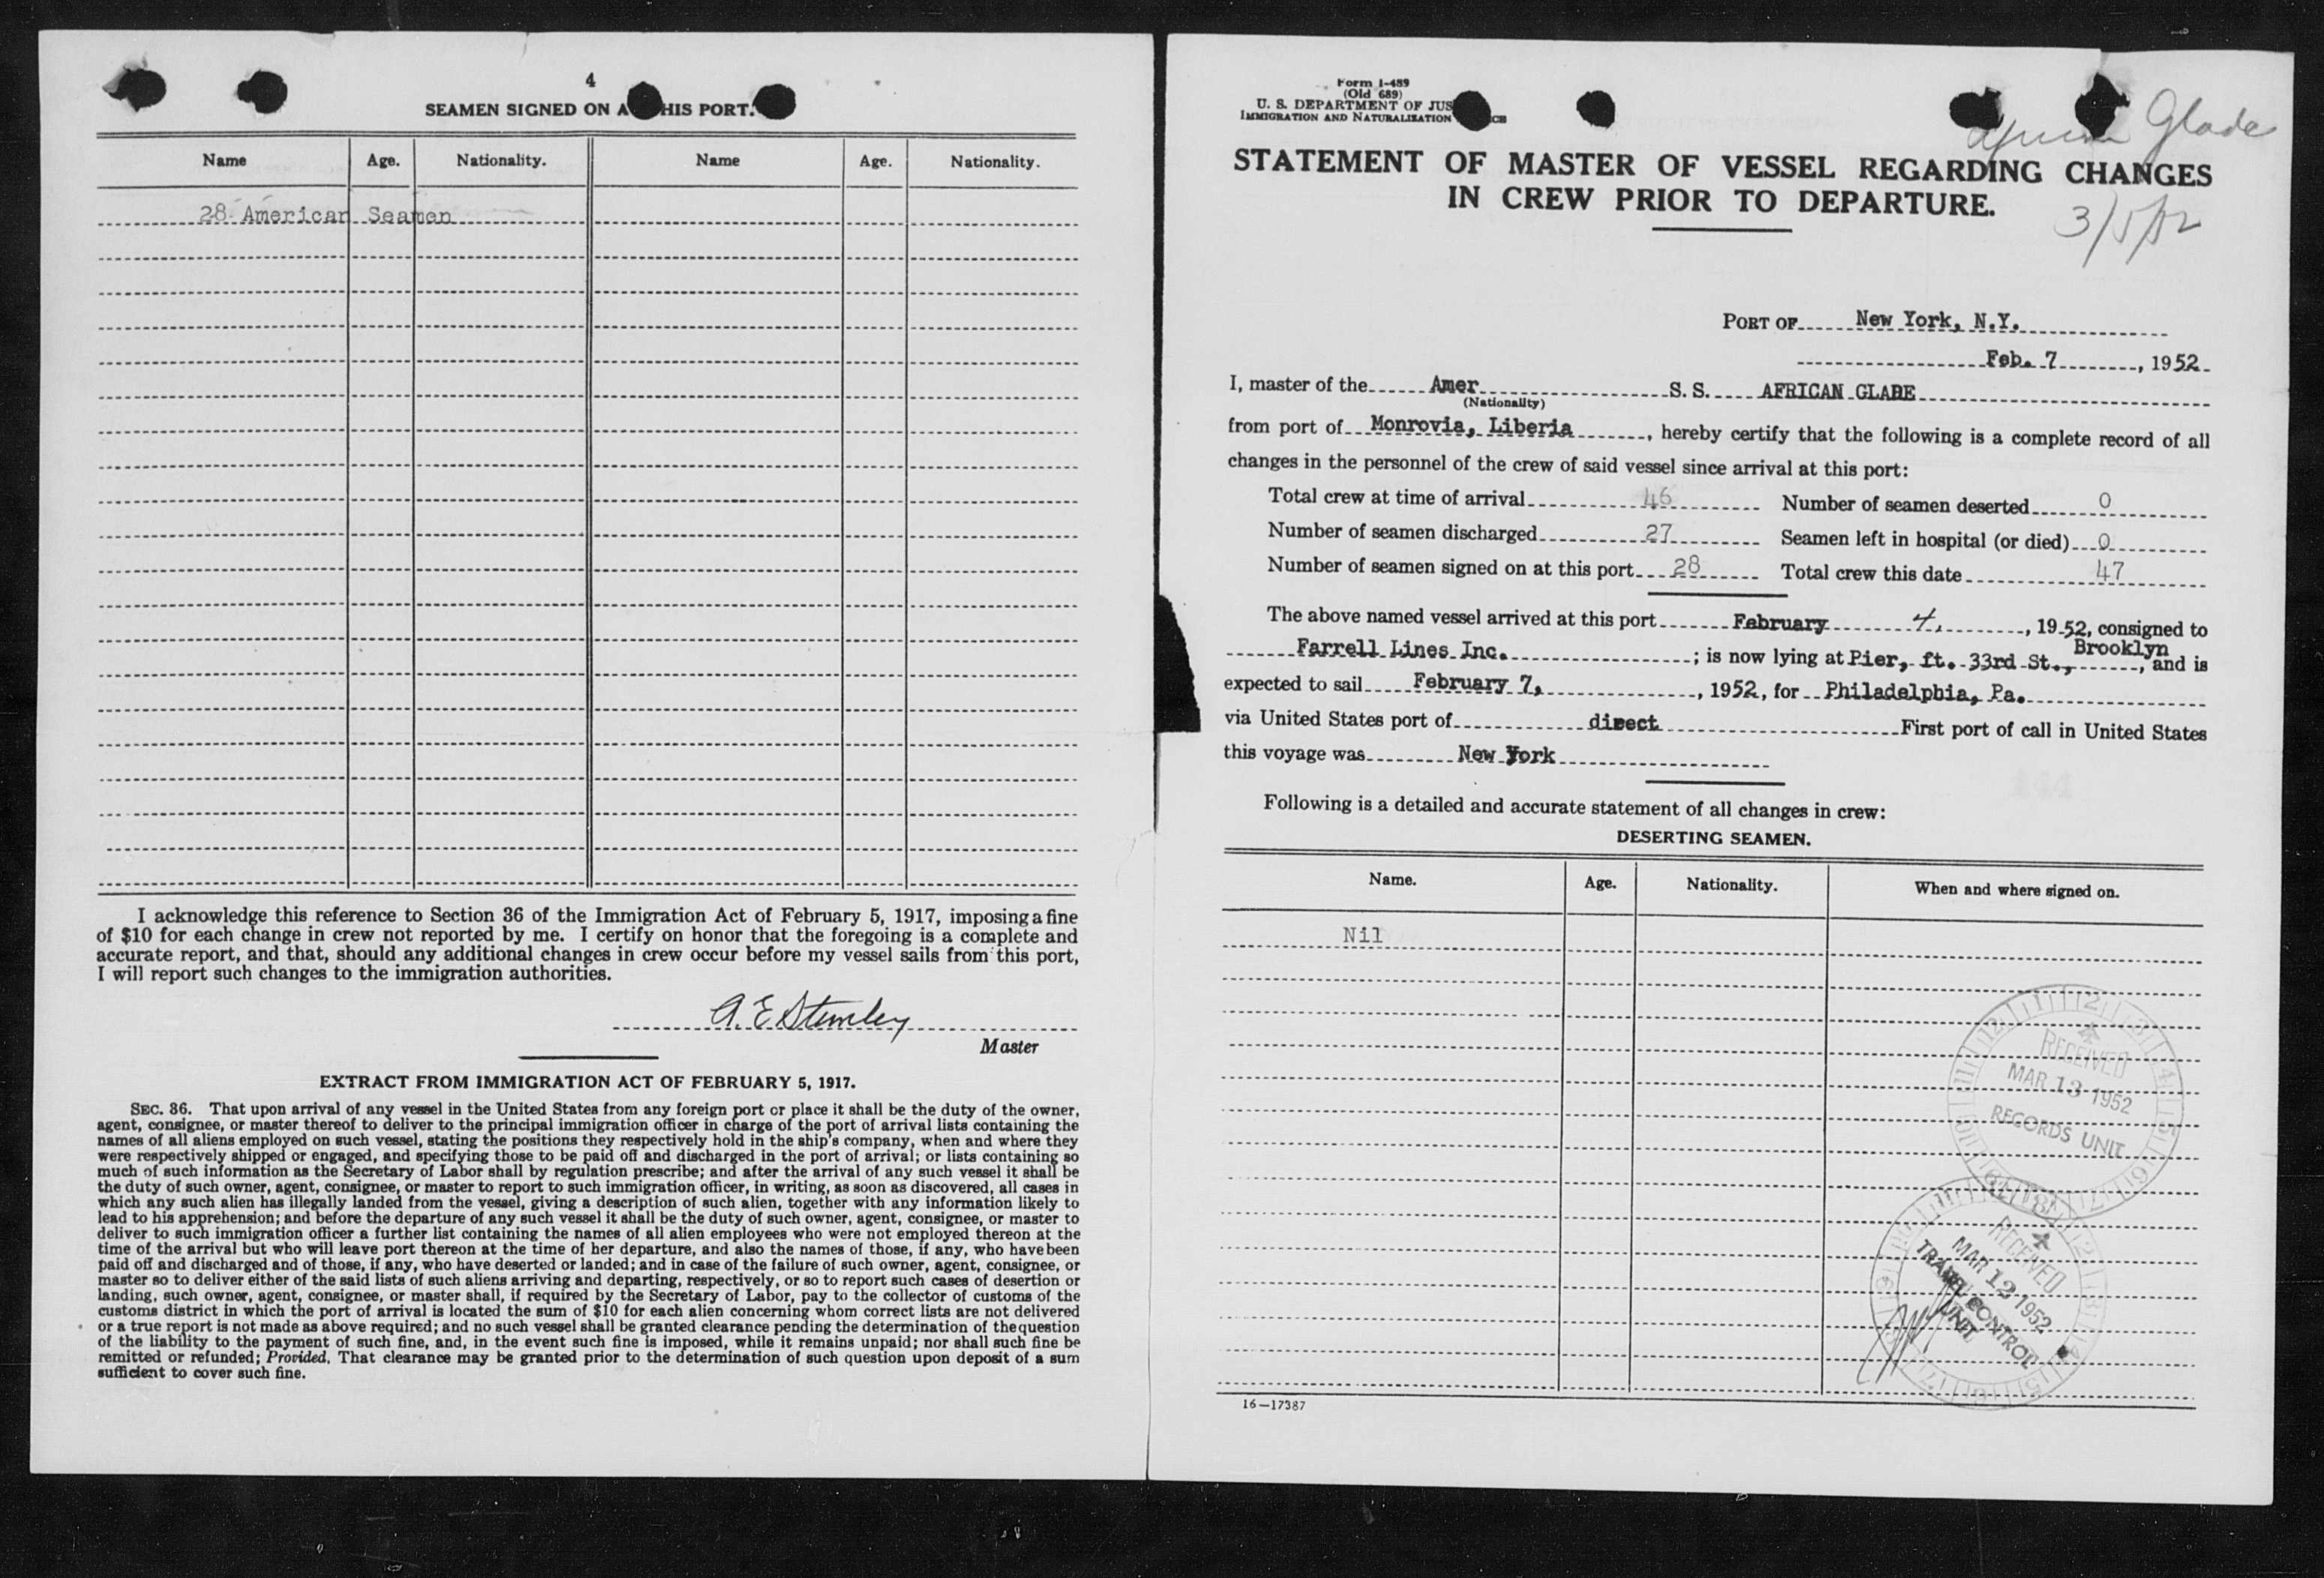 4
SEAMEN SIGNED ON A HIS PORT.
Name Age. Nationality. Name Age. Nationality.
28 American Seamen
I acknowledge this reference to Section 36 of the Immigration Act of February 5, 1917, imposing a fine
of $10 for each change in crew not reported by me. I certify on honor that the foregoing is a complete and
accurate report, and that, should any additional changes in crew occur before my vessel sails from this port,
I will report such changes to the immigration authorities.
A. E. Stumley
Master
EXTRACT FROM IMMIGRATION ACT OF FEBRUARY 5, 1917.
SEC. 36. That upon arrival of any vessel in the United States from any foreign port or place it shall be the duty of the owner,
agent, consignee, or master thereof to deliver to the principal immigration officer in charge of the port of arrival lists containing the
names of all aliens employed on such vessel, stating the positions they respectively hold in the ship's company, when and where they
were respectively shipped or engaged, and specifying those to be paid off and discharged in the port of arrival; or lists containing so
much of such information as the Secretary of Labor shall by regulation prescribe; and after the arrival of any such vessel it shall be
the duty of such owner, agent, consignee, or master to report to such immigration officer, in writing, as soon as discovered, all cases in
which any such alien has illegally landed from the vessel, giving a description of such alien, together with any information likely to
lead to his apprehension; and before the departure of any such vessel it shall be the duty of such owner, agent, consignee, or master to
deliver to such immigration officer a further list containing the names of all alien employees who were not employed thereon at the
time of the arrival but who will leave port thereon at the time of her departure, and also the names of those, if any, who have been
paid off and discharged and of those, if any, who have deserted or landed; and in case of the failure of such owner, agent, consignee, or
master so to deliver either of the said lists of such aliens arriving and departing, respectively, or so to report such cases of desertion or
landing, such owner, agent, consignee, or master shall, if required by the Secretary of Labor, pay to the collector of customs of the
customs district in which the port of arrival is located the sum of $10 for each alien concerning whom correct lists are not delivered
or a true report is not made as above required; and no such vessel shall be granted clearance pending the determination of the question
of the liability to the payment of such fine, and, in the event such fine is imposed, while it remains unpaid; nor shall such fine be
remitted or refunded; Provided, That clearance may be granted prior to the determination of such question upon deposit of a sum
sufficient to cover such fine.
Form I-489
(Old 689)
U. S. DEPARTMENT OF JUS
IMMIGRATION AND NATURALIZATION
Glade
STATEMENT OF MASTER OF VESSEL REGARDING CHANGES
IN CREW PRIOR TO DEPARTURE.
3/5/52
PORT OF New York, N.Y.
Feb. 7, 1952
I, master of the Amer S. S. AFRICAN GLADE
(Nationality)
from port of Monrovia, Liberia, hereby certify that the following is a complete record of all
changes in the personnel of the crew of said vessel since arrival at this port:
Total crew at time of arrival 46 Number of seamen deserted 0
Number of seamen discharged 27 Seamen left in hospital (or died) 0
Number of seamen signed on at this port 28 Total crew this date 47
The above named vessel arrived at this port February 4, 1952, consigned to
Farrell Lines Inc.; is now lying at Pier, ft. 33rd St., Brooklyn, and is
expected to sail February 7, 1952, for Philadelphia, Pa.
via United States port of direct First port of call in United States
this voyage was New York
Following is a detailed and accurate statement of all changes in crew:
DESERTING SEAMEN.
Name. Age. Nationality. When and where signed on.
Nil
RECEIVED
MAR 13 1952
RECORDS UNIT
RECEIVED
MAR 12 1952
TRAVEL CONTROL
UNIT
16—17387